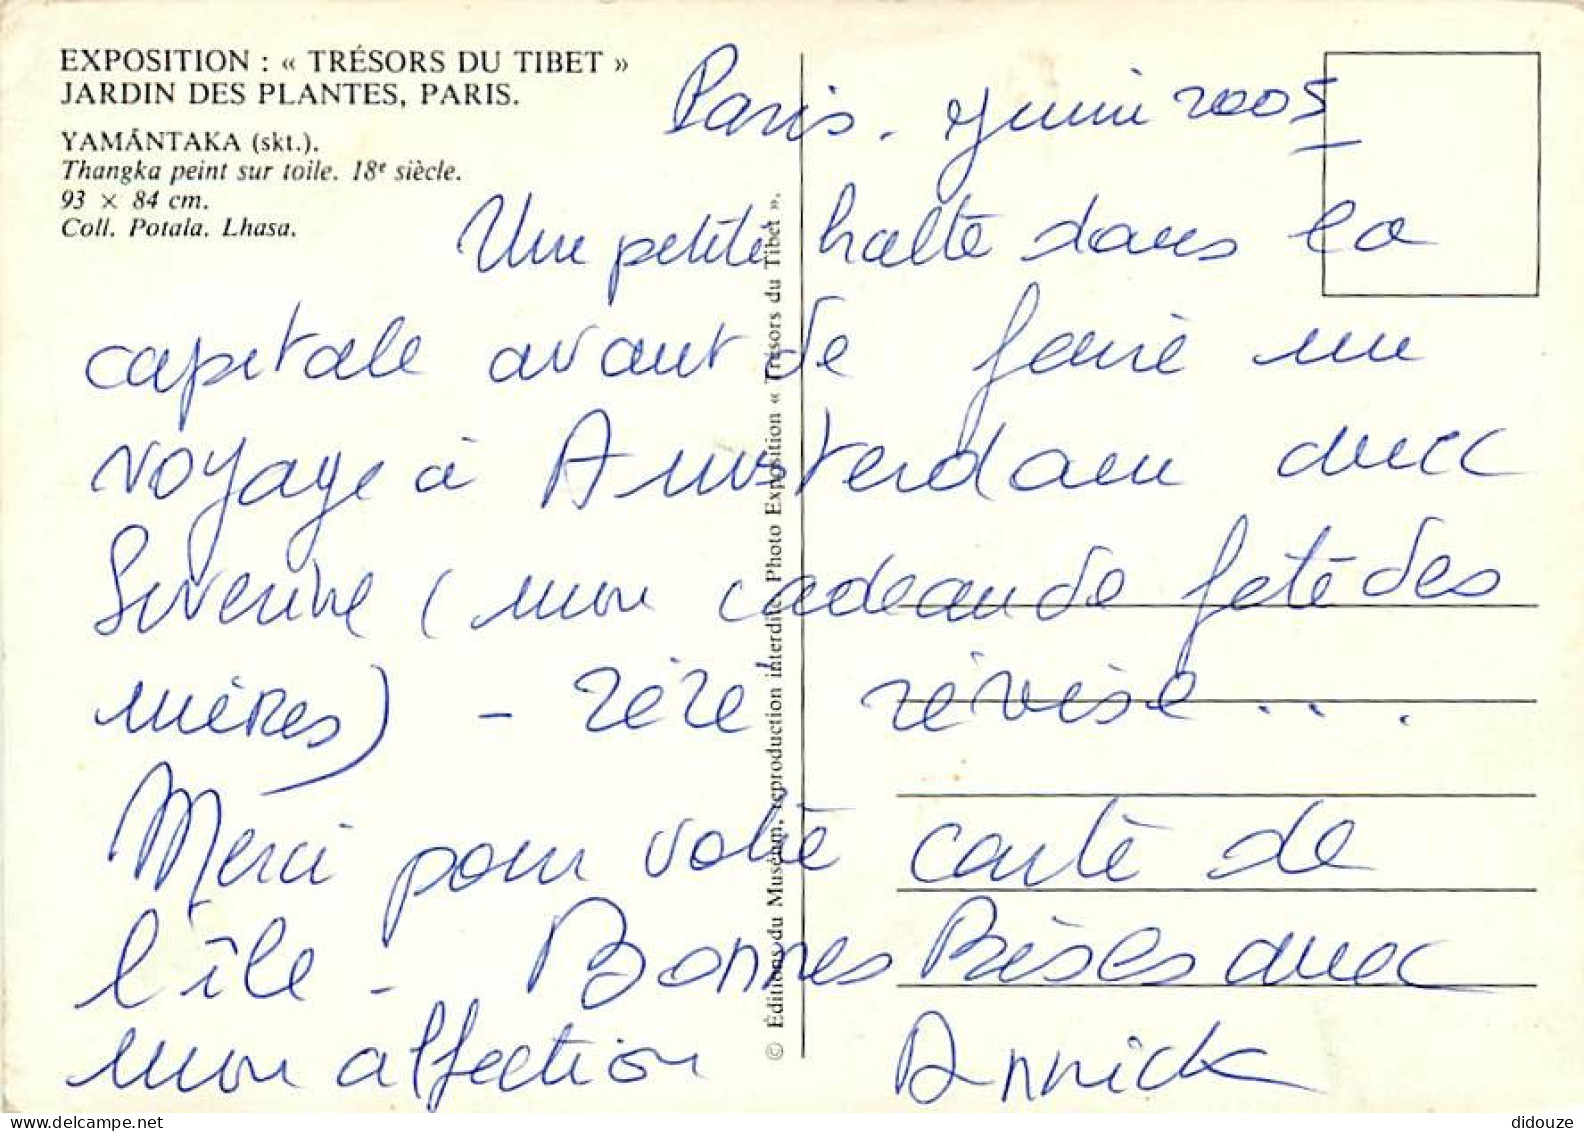 EXPOSITION : « TRÉSORS DU TIBET »
JARDIN DES PLANTES, PARIS.
YAMĀNTAKA (skt.).
Thangka peint sur toile. 18e siècle.
93 × 84 cm.
Coll. Potala. Lhasa.
Paris. Juin 2005
Une petite halte dans la
capitale avant de faire un
voyage à Amsterdam avec
Séverine (mon cadeau de fête des
mères) - Zézé révise ...
Merci pour votre carte de
l'île - Bonnes Bises avec
mon affection Annick
© Éditions du Muséum, reproduction interdite. Photo Exposition « Trésors du Tibet ».
www.delcampe.net
didouze